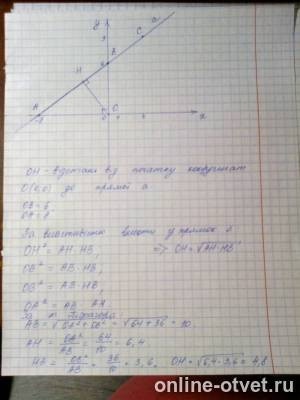 y
a
C
B
H
A
-8
O
x
OH - відстань від початку координат
O(0;0) до прямої a
OB = 6
OA = 8
За властивістю висоти у прямок. Δ
OH² = AH·HB, => OH = √AH·HB
OB² = AB·HB,
OB² = AB·HB,
OA² = AB·AH
За т. Піфагора:
AB = √OA²+OB² = √64+36 = 10.
AH = OA²/AB = 64/10 = 6,4
HB = OB²/AB = 36/10 = 3,6, OH = √6,4·3,6 = 4,8
online-otvet.ru